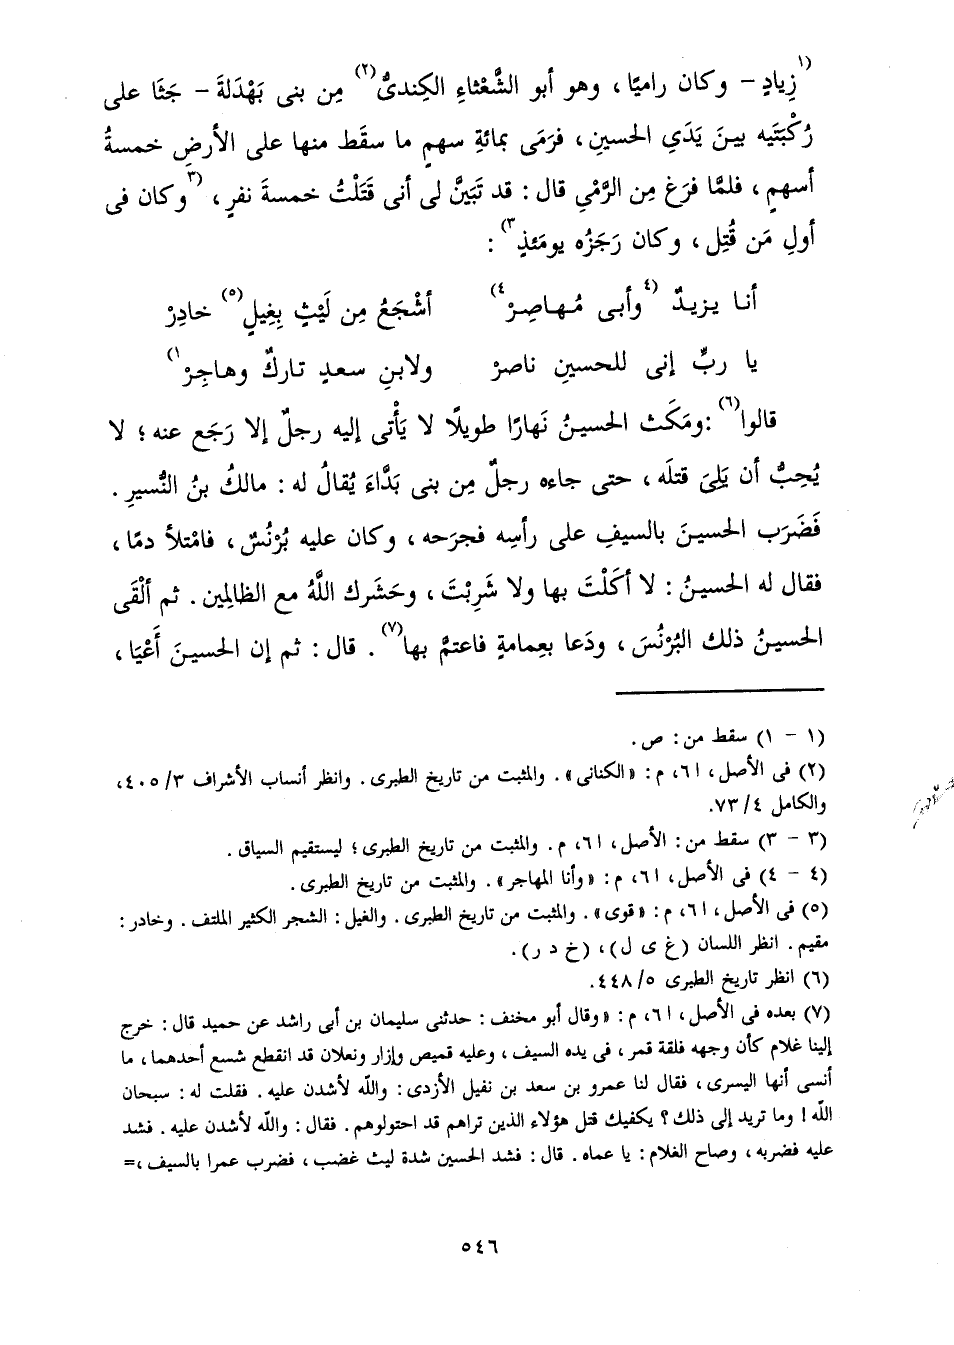 (١ زِيادٍ - وكان راميًا ، وهو أبو الشَّعْثاءِ الكِندىُّ(٢) مِن بنى بَهْدَلةَ - جَثَا على
رُكْبَتَيه بينَ يَدَيِ الحسينِ ، فرَمَى بمائةِ سهمٍ ما سقَط منها على الأرضِ خمسةُ
أسهمٍ ، فلمَّا فرَغ مِن الرَّمْيِ قال : قد تَبَيَّنَ لى أنى قَتَلْتُ خمسةَ نفرٍ ، (٣ وكان فى
أولِ مَن قُتِل ، وكان رَجَزُه يومَئذٍ ٣) :
أنا يزيدٌ (٤ وأبى مُهاصِرْ ٤) أشْجَعُ مِن لَيْثٍ بِغِيلٍ(٥) خادِرْ
يا ربِّ إنى للحسينِ ناصرْ ولابنِ سعدٍ تاركٌ وهاجِرْ ١)
قالوا(٦) : ومَكَث الحسينُ نَهارًا طويلًا لا يَأْتى إليه رجلٌ إلا رَجَع عنه ؛ لا
يُحِبُّ أن يَلِىَ قتلَه ، حتى جاءه رجلٌ مِن بنى بَدَّاءَ يُقالُ له : مالكُ بنُ النُّسيرِ .
فَضَرَب الحسينَ بالسيفِ على رأسِه فجرَحه ، وكان عليه بُرْنُسٌ ، فامْتلأ دمًا ،
فقال له الحسينُ : لا أكَلْتَ بها ولا شَرِبْتَ ، وحَشَرك اللَّهُ مع الظالِمين . ثم ألْقَى
الحسينُ ذلك البُرْنُسَ ، ودَعا بعِمامةٍ فاعتمَّ بها(٧) . قال : ثم إن الحسينَ أَعْيَا ،
(١ - ١) سقط من : ص .
(٢) فى الأصل ، ٦١ ، م : « الكنانى » . والمثبت من تاريخ الطبرى . وانظر أنساب الأشراف ٣/ ٤٠٥ ،
والكامل ٤/ ٧٣.
(٣ - ٣) سقط من : الأصل ، ٦١ ، م . والمثبت من تاريخ الطبرى ؛ ليستقيم السياق .
(٤ - ٤) فى الأصل ، ٦١ ، م : « وأنا المهاجر » . والمثبت من تاريخ الطبرى .
(٥) فى الأصل ، ٦١ ، م : « قوى » . والمثبت من تاريخ الطبرى . والغيل : الشجر الكثير الملتف . وخادر :
مقيم . انظر اللسان (غ ى ل) ، (خ د ر) .
(٦) انظر تاريخ الطبرى ٥/ ٤٤٨.
(٧) بعده فى الأصل ، ٦١ ، م : « وقال أبو مخنف : حدثنى سليمان بن أبى راشد عن حميد قال : خرج
إلينا غلام كأن وجهه فلقة قمر ، فى يده السيف ، وعليه قميص وإزار ونعلان قد انقطع شسع أحدهما ، ما
أنسى أنها اليسرى ، فقال لنا عمرو بن سعد بن نفيل الأزدى : والله لأشدن عليه . فقلت له : سبحان
الله ! وما تريد إلى ذلك ؟ يكفيك قتل هؤلاء الذين تراهم قد احتولوهم . فقال : والله لأشدن عليه . فشد
عليه فضربه ، وصاح الغلام : يا عماه . قال : فشد الحسين شدة ليث غضب ، فضرب عمرا بالسيف ،=
٥٤٦